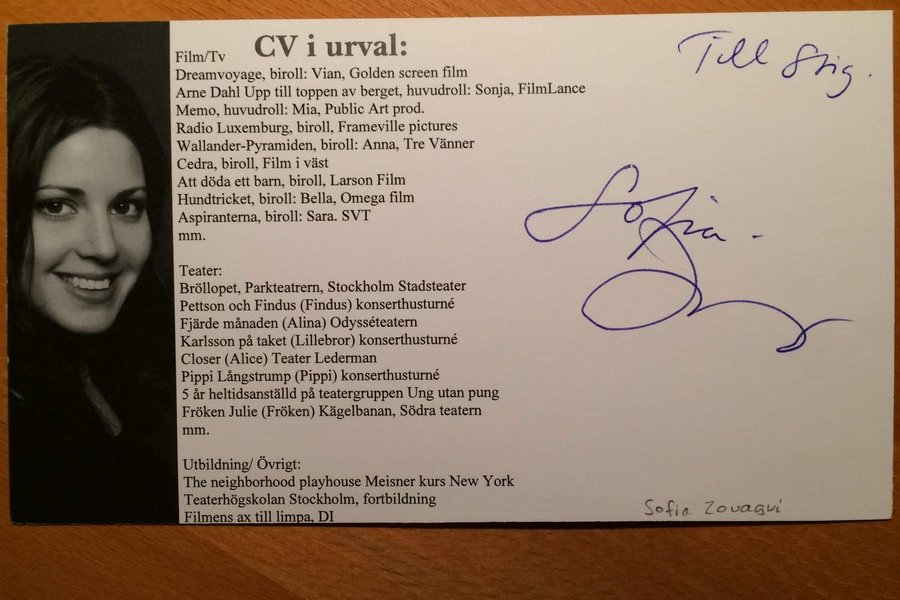 CV i urval:
Film/Tv
Dreamvoyage, biroll: Vian, Golden screen film
Arne Dahl Upp till toppen av berget, huvudroll: Sonja, FilmLance
Memo, huvudroll: Mia, Public Art prod.
Radio Luxemburg, biroll, Frameville pictures
Wallander-Pyramiden, biroll: Anna, Tre Vänner
Cedra, biroll, Film i väst
Att döda ett barn, biroll, Larson Film
Hundtricket, biroll: Bella, Omega film
Aspiranterna, biroll: Sara. SVT
mm.
Teater:
Bröllopet, Parkteatrern, Stockholm Stadsteater
Pettson och Findus (Findus) konserthusturné
Fjärde månaden (Alina) Odysséteatern
Karlsson på taket (Lillebror) konserthusturné
Closer (Alice) Teater Lederman
Pippi Långstrump (Pippi) konserthusturné
5 år heltidsanställd på teatergruppen Ung utan pung
Fröken Julie (Fröken) Kägelbanan, Södra teatern
mm.
Utbildning/ Övrigt:
The neighborhood playhouse Meisner kurs New York
Teaterhögskolan Stockholm, fortbildning
Filmens ax till limpa, DI
Till Stig.
Sofia
Sofia Zouagui